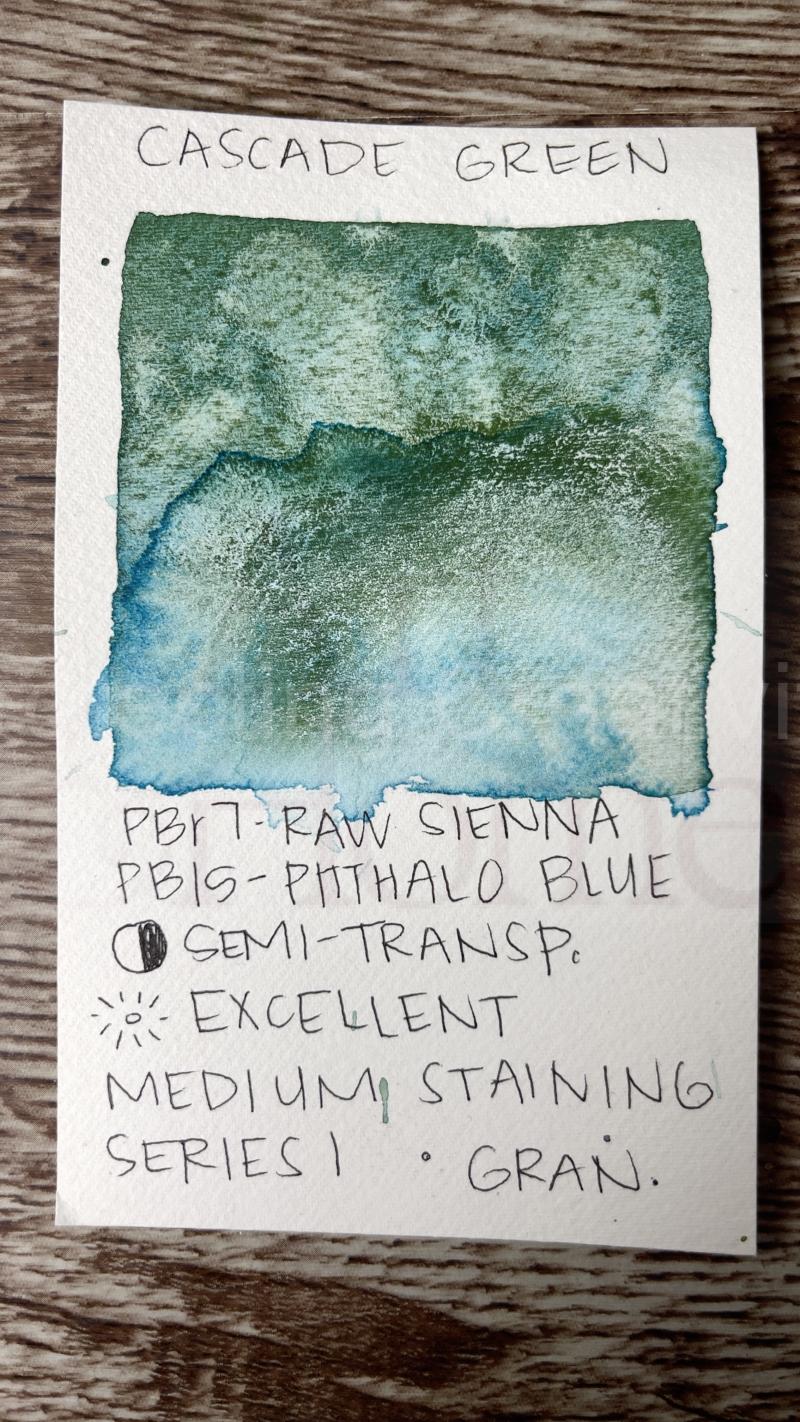 CASCADE GREEN
PBr7-RAW SIENNA
PB15-PHTHALO BLUE
SEMI-TRANSP.
EXCELLENT
MEDIUM STAINING
SERIES 1 • GRAN.